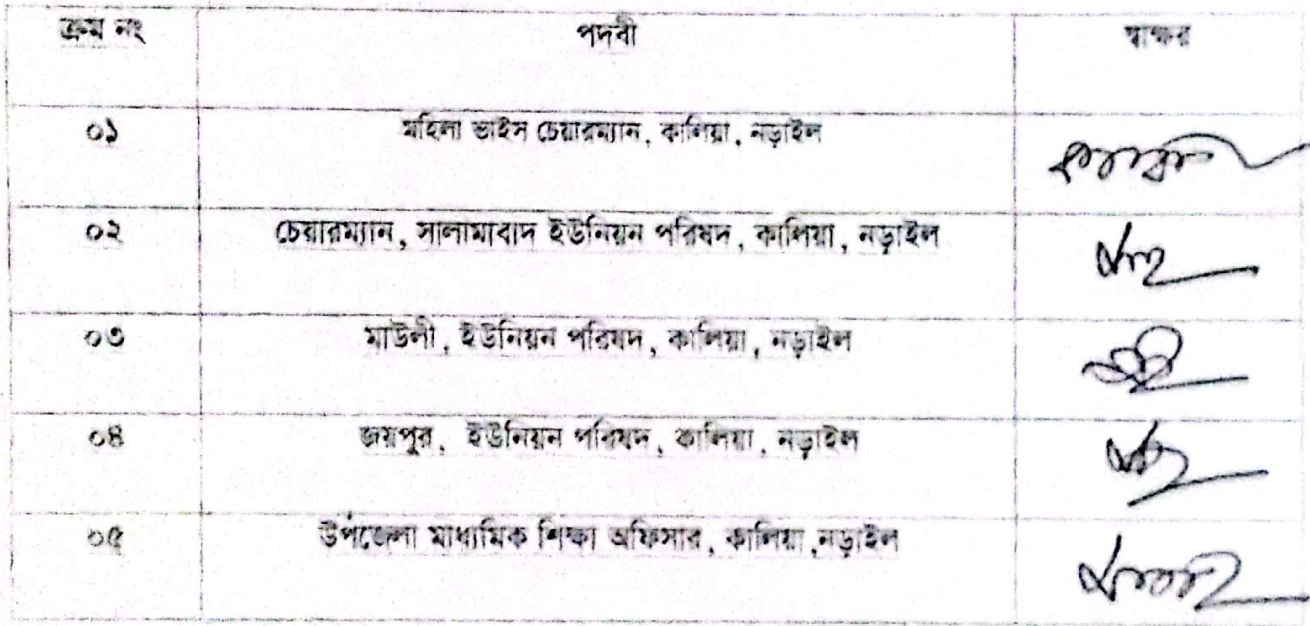 ক্রম নং পদবী স্বাক্ষর
০১ মহিলা ভাইস চেয়ারম্যান, কালিয়া, নড়াইল
০২ চেয়ারম্যান, সালামাবাদ ইউনিয়ন পরিষদ, কালিয়া, নড়াইল
০৩ মাউলী, ইউনিয়ন পরিষদ, কালিয়া, নড়াইল
০৪ জয়পুর, ইউনিয়ন পরিষদ, কালিয়া, নড়াইল
০৫ উপজেলা মাধ্যমিক শিক্ষা অফিসার, কালিয়া,নড়াইল